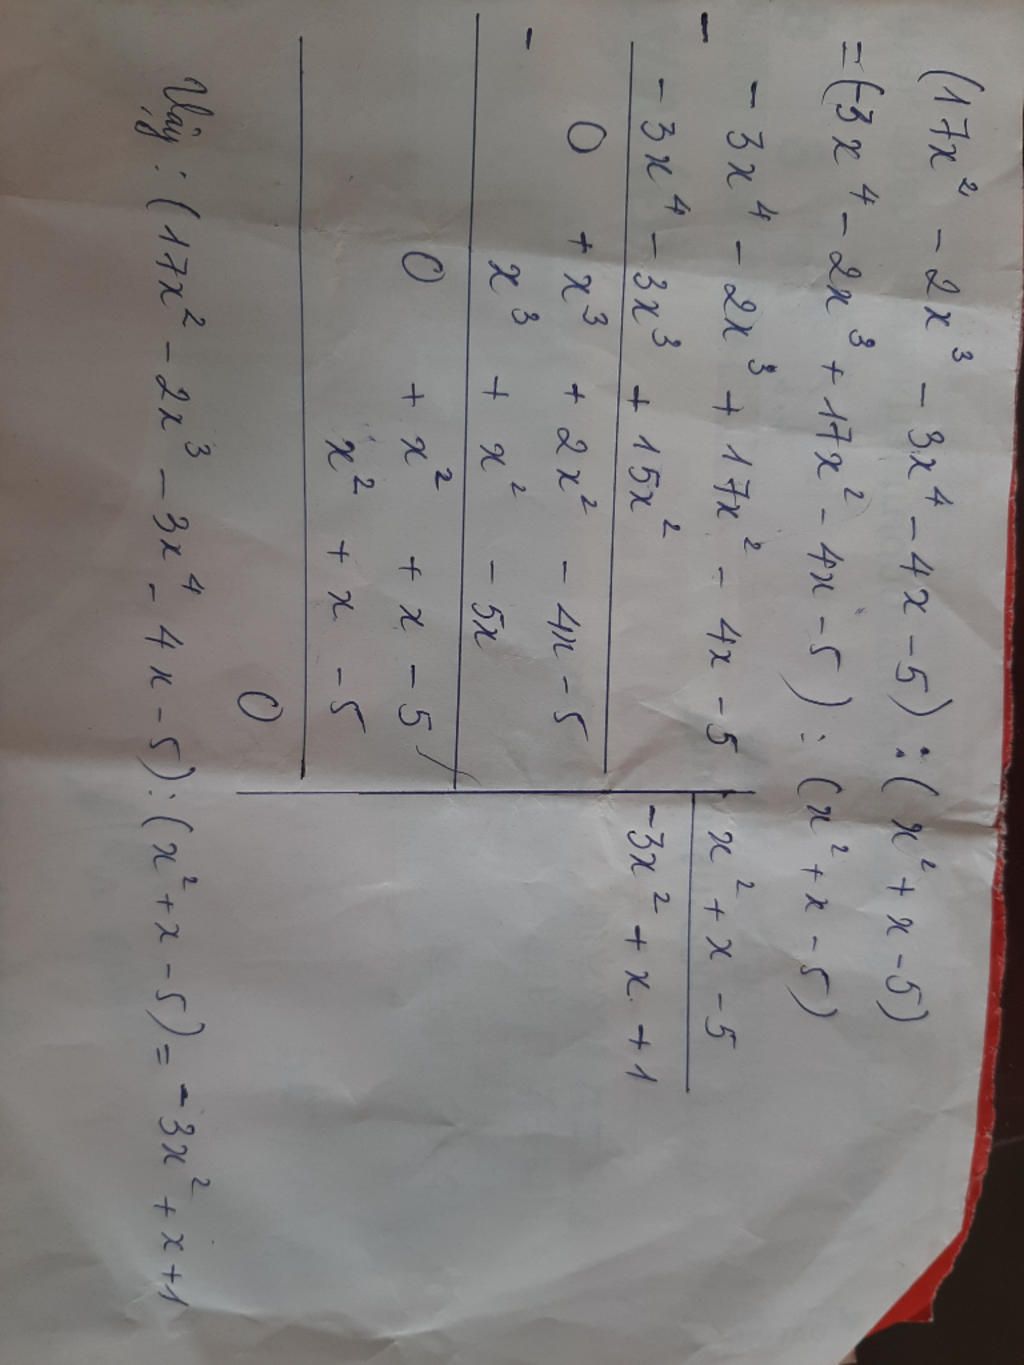 (17x² - 2x³ - 3x⁴ - 4x - 5) : (x² + x - 5)
= (-3x⁴ - 2x³ + 17x² - 4x - 5) : (x² + x - 5)
-
- 3x⁴ - 2x³ + 17x² - 4x - 5 | x² + x - 5
- 3x⁴ - 3x³ + 15x² | -3x² + x + 1
0 + x³ + 2x² - 4x - 5
-
x³ + x² - 5x
0 + x² + x - 5
x² + x - 5
0
Vậy : (17x² - 2x³ - 3x⁴ - 4x - 5) : (x² + x - 5) = - 3x² + x + 1